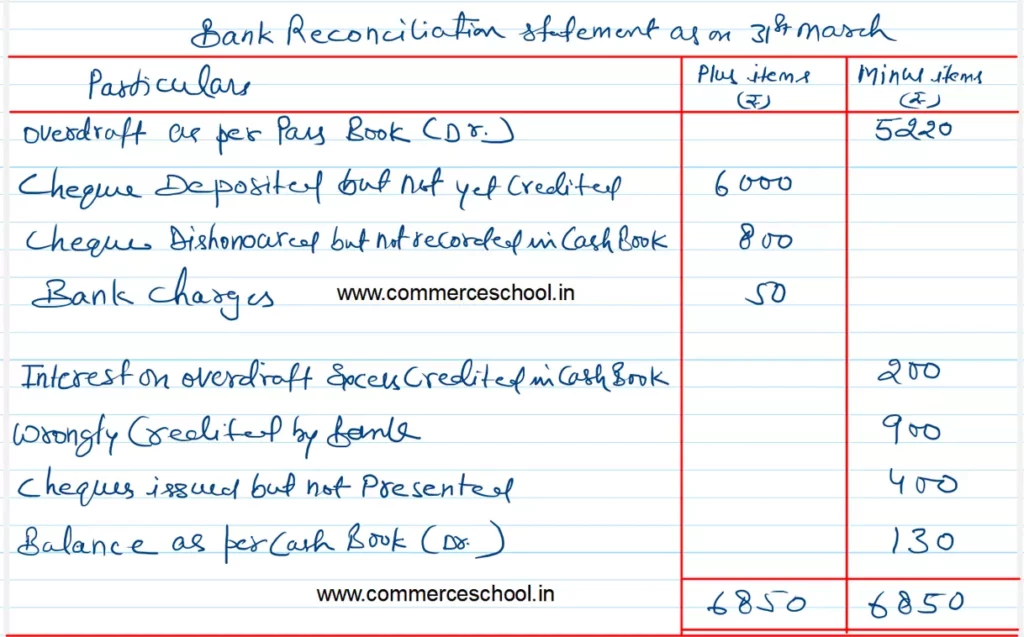 Bank Reconciliation statement as on 31st March
Particulars Plus items (₹) Minus items (₹)
Overdraft as per Pass Book (Dr.) 5220
Cheque Deposited but not yet Credited 6000
Cheque Dishonoured but not recorded in Cash Book 800
Bank Charges www.commerceschool.in 50
Interest on overdraft Excess Credited in Cash Book 200
Wrongly Credited by bank 900
Cheques issued but not Presented 400
Balance as per Cash Book (Dr.) 130
www.commerceschool.in 6850 6850